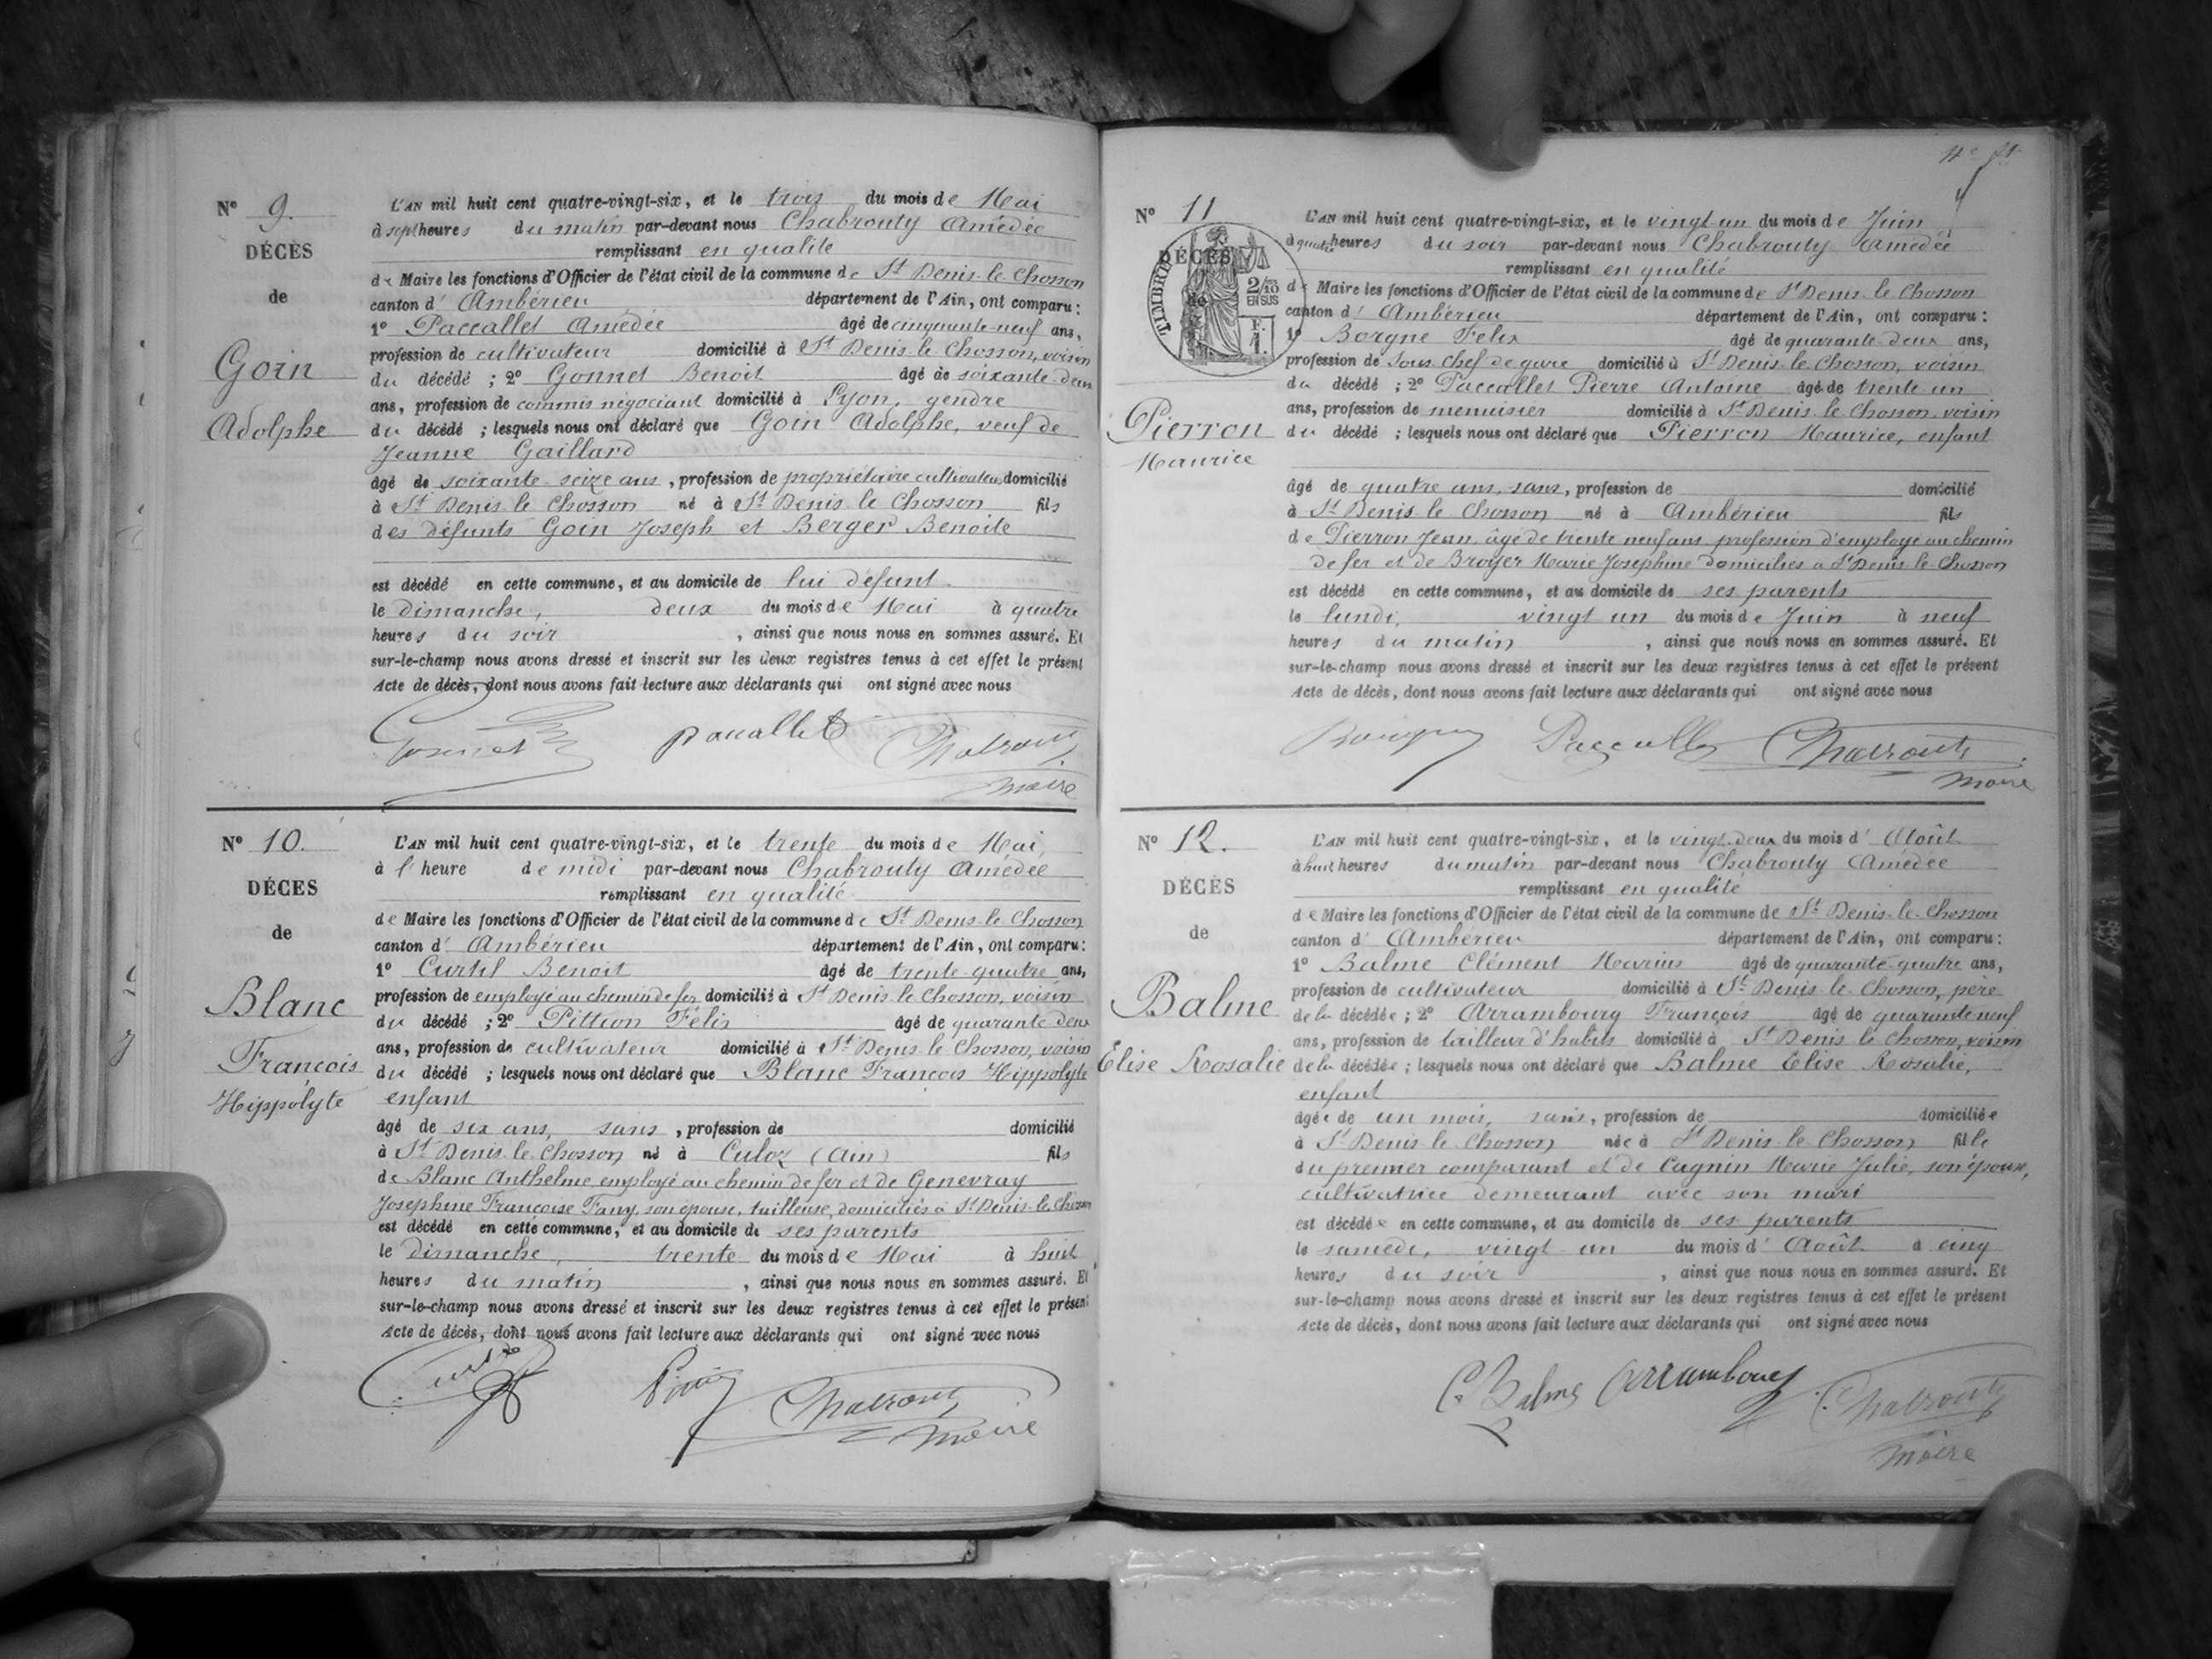 N° 9.
DÉCÈS
de
Goin
Adolphe
L'AN mil huit cent quatre-vingt-six, et le trois du mois de Mai
à sept heures du matin par-devant nous Chabrouty Amédée
remplissant en qualité
de Maire les fonctions d'Officier de l'état civil de la commune de St Denis-le-Chosson
canton d' Ambérieu département de l'Ain, ont comparu :
1° Paccallet Amédée âgé de cinquante-neuf ans,
profession de cultivateur domicilié à St Denis-le-Chosson, voisin
du décédé ; 2° Gonnet Benoit âgé de soixante-deux
ans, profession de commis négociant domicilié à Lyon, gendre
du décédé ; lesquels nous ont déclaré que Goin Adolphe, veuf de
Jeanne Gaillard
âgé de soixante-seize ans, profession de propriétaire cultivateur domicilié
à St Denis-le-Chosson né à St Denis-le-Chosson fils
des défunts Goin Joseph et Berger Benoite
est décédé en cette commune, et au domicile de lui défunt
le dimanche, deux du mois de Mai à quatre
heures du soir, ainsi que nous nous en sommes assuré. Et
sur-le-champ nous avons dressé et inscrit sur les deux registres tenus à cet effet le présent
Acte de décès, dont nous avons fait lecture aux déclarants qui ont signé avec nous
Gonnet Paccallet Chabrouty
Maire
N° 10.
DÉCES
de
Blanc
François
Hippolyte
L'AN mil huit cent quatre-vingt-six, et le trente du mois de Mai,
à l' heure de midi par-devant nous Chabrouty Amédée
remplissant en qualité
de Maire les fonctions d'Officier de l'état civil de la commune de St Denis-le-Chosson
canton d' Ambérieu département de l'Ain, ont comparu :
1° Curtil Benoit âgé de trente-quatre ans,
profession de employé au chemin de fer domicilié à St Denis-le-Chosson, voisin
du décédé ; 2° Pittion Félix âgé de quarante-deux
ans, profession de cultivateur domicilié à St Denis-le-Chosson, voisin
du décédé ; lesquels nous ont déclaré que Blanc François Hippolyte
enfant
âgé de six ans, sans, profession de domicilié
à St Denis-le-Chosson né à Culoz (Ain) fils
de Blanc Anthelme, employé au chemin de fer et de Genevray
Josephine Françoise Fany, son épouse, tailleuse, domiciliés à St Denis-le-Chosson
est décédé en cette commune, et au domicile de ses parents
le dimanche, trente du mois de Mai à huit
heures du matin, ainsi que nous nous en sommes assuré. Et
sur-le-champ nous avons dressé et inscrit sur les deux registres tenus à cet effet le présent
Acte de décès, dont nous avons fait lecture aux déclarants qui ont signé avec nous
Chabrouty
Maire
N° 11
DÉCÈS
de
TIMBRE
2/10 EN SUS
F. 1.
Pierron
Maurice
L'AN mil huit cent quatre-vingt-six, et le vingt-un du mois de Juin
à quatre heures du soir par-devant nous Chabrouty Amédée
remplissant en qualité
de Maire les fonctions d'Officier de l'état civil de la commune de St Denis-le-Chosson
canton d' Ambérieu département de l'Ain, ont comparu :
1° Borgne Félix âgé de quarante-deux ans,
profession de Sous-Chef de gare domicilié à St Denis-le-Chosson, voisin
du décédé ; 2° Paccallet Pierre Antoine âgé de trente-un
ans, profession de menuisier domicilié à St Denis-le-Chosson, voisin
du décédé ; lesquels nous ont déclaré que Pierron Maurice, enfant
âgé de quatre ans, sans, profession de domicilié
à St Denis-le-Chosson né à Ambérieu fils
de Pierron Jean, âgé de trente neuf ans, profession d'employé au chemin
de fer et de Broyer Marie Josephine domiciliés à St Denis-le-Chosson
est décédé en cette commune, et au domicile de ses parents
le lundi, vingt un du mois de Juin à neuf
heures du matin, ainsi que nous nous en sommes assuré. Et
sur-le-champ nous avons dressé et inscrit sur les deux registres tenus à cet effet le présent
Acte de décès, dont nous avons fait lecture aux déclarants qui ont signé avec nous
Paccallet Chabrouty
Maire
N° 12.
DÉCÈS
de
Balme
Élise Rosalie
L'AN mil huit cent quatre-vingt-six, et le vingt-deux du mois d' Août
à huit heures du matin par-devant nous Chabrouty Amédée
remplissant en qualité
de Maire les fonctions d'Officier de l'état civil de la commune de St Denis-le-Chosson
canton d' Ambérieu département de l'Ain, ont comparu :
1° Balme Clément Marius âgé de quarante-quatre ans,
profession de cultivateur domicilié à St Denis-le-Chosson, père
de la décédée ; 2° Arrambourg François âgé de quarante neuf
ans, profession de tailleur d'habits domicilié à St Denis-le-Chosson, voisin
de la décédée ; lesquels nous ont déclaré que Balme Élise Rosalie,
enfant
âgée de un mois, sans, profession de domiciliée
à St Denis-le-Chosson née à St Denis-le-Chosson fille
du premier comparant et de Cagnin Marie Julie, son épouse,
cultivatrice demeurant avec son mari
est décédée en cette commune, et au domicile de ses parents
le samedi, vingt un du mois d' Août à cinq
heures du soir, ainsi que nous nous en sommes assuré. Et
sur-le-champ nous avons dressé et inscrit sur les deux registres tenus à cet effet le présent
Acte de décès, dont nous avons fait lecture aux déclarants qui ont signé avec nous
C. Balme Arrambourg Chabrouty
Maire